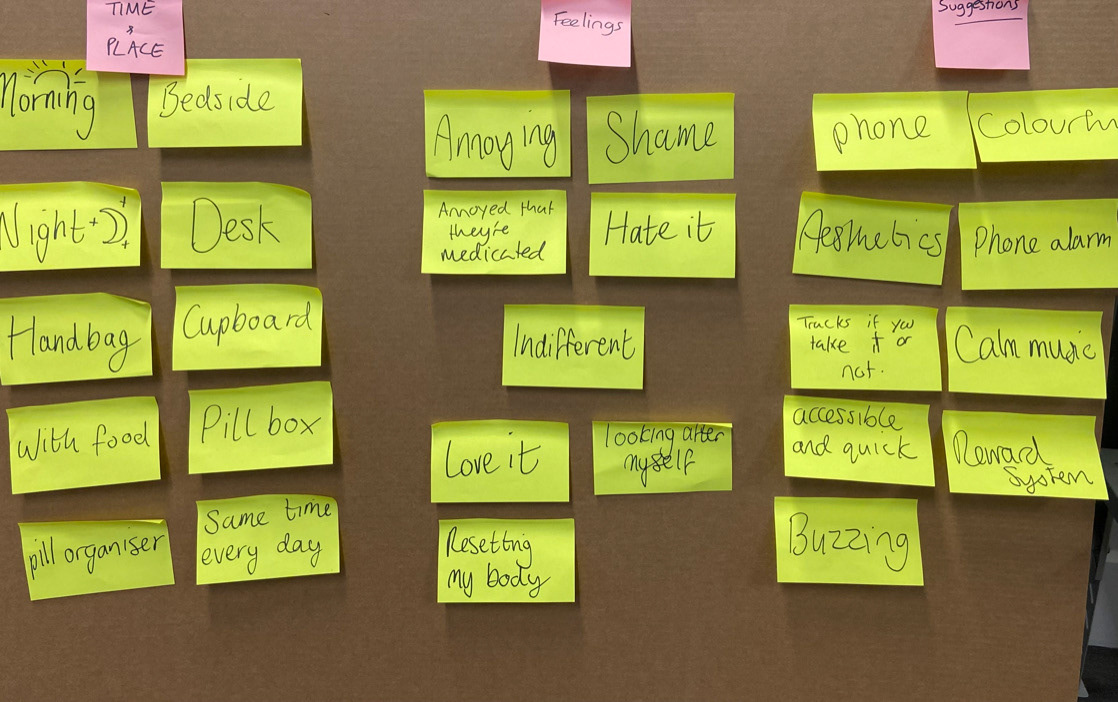 TIME
&
PLACE
Morning
Bedside
Night
Desk
Handbag
Cupboard
With food
Pill box
pill organiser
Same time
every day
Feelings
Annoying
Shame
Annoyed that
they're
medicated
Hate it
Indifferent
Love it
looking after
myself
Resetting
my body
Suggestions
phone
Colourfu
Aesthetics
Phone alarm
Tracks if you
take it or
not.
Calm music
accessible
and quick
Reward
System
Buzzing